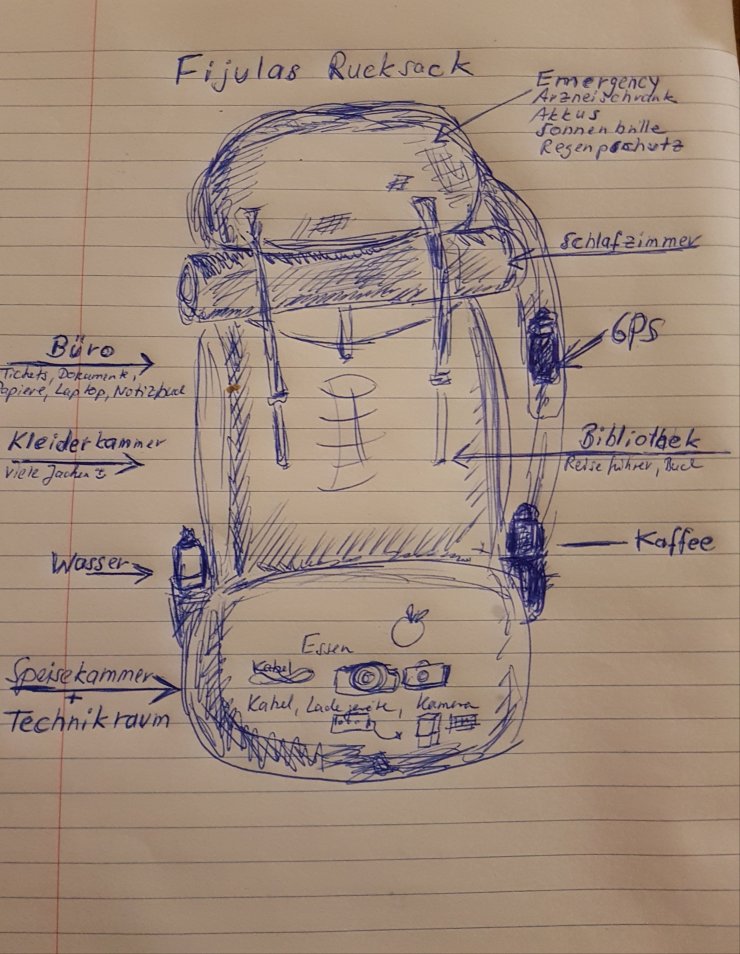 Fijulas Rucksack
Emergency
Arzneischrank
Akkus
Sonnenbrille
Regenschutz
Schlafzimmer
GPS
Büro
Tickets, Dokumente,
Papiere, Laptop, Notizbuch
Kleiderkammer
viele Jacken
Bibliothek
Reiseführer, Buch
Wasser
Kaffee
Speisekammer
+
Technikraum
Essen
Kabel
Kabel, Ladegeräte, Kamera